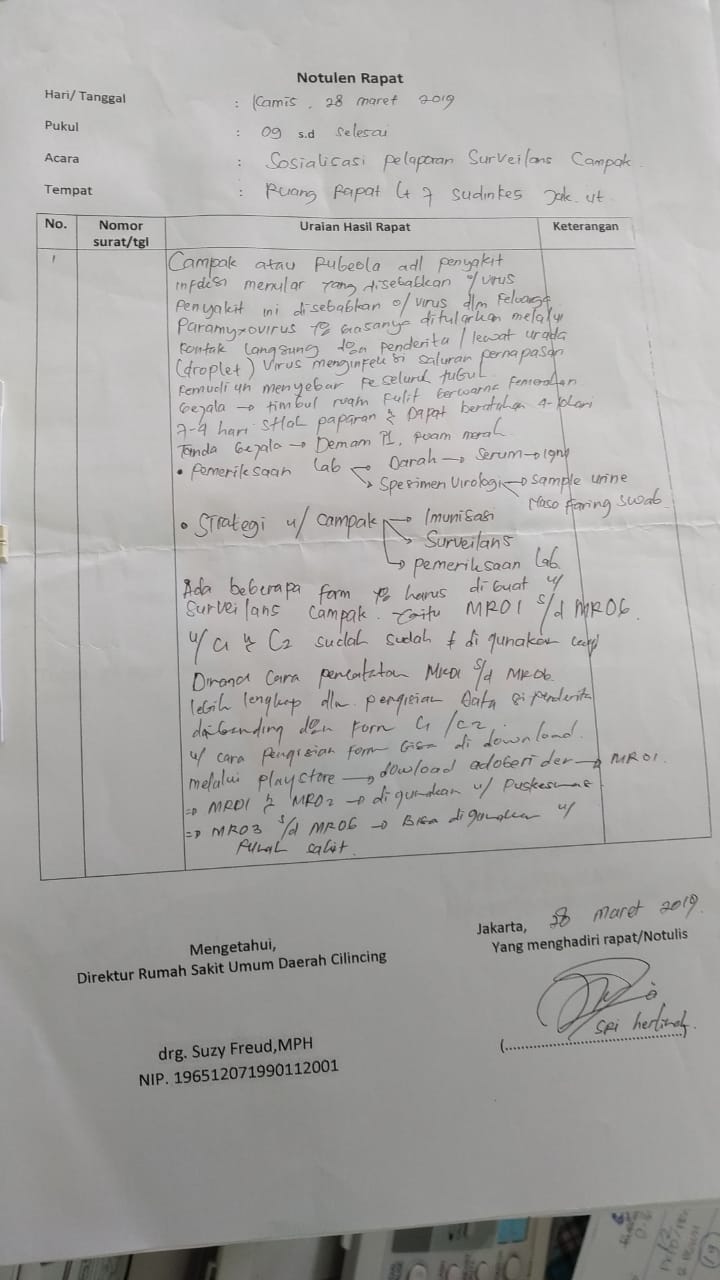 Notulen Rapat
Hari/ Tanggal : Kamis, 28 maret 2019
Pukul : 09 s.d selesai
Acara : Sosialisasi pelaporan Surveilans Campak.
Tempat : Ruang Rapat Lt 7 sudinkes Jak. ut
No. Nomor surat/tgl Uraian Hasil Rapat Keterangan
1 Campak atau Rubeola adl penyakit
infeksi menular yang disebabkan o/ virus
Penyakit ini disebabkan o/ virus dlm keluarga
Paramyxovirus yg biasanya ditularkan melalui
kontak langsung dgn penderita / lewat udara
(droplet) Virus menginfeksi saluran pernapasan
kemudian menyebar ke seluruh tubuh
Gejala → timbul ruam kulit berwarna kemerahan
hari stlah paparan & Dapat bertahan 4-10 hari
Tanda Gejala → Demam PL, ruam merah
• Pemeriksaan Lab → Darah → Serum → IgM
↘ Spesimen Virologi → Sample urine
Naso faring swab
• Strategi u/ campak → Imunisasi
↘ Surveilans
↳ pemeriksaan Lab.
Ada beberapa form yg harus di buat u/
Surveilans Campak. Yaitu MR01 s/d MR06.
u/ C1 & C2 sudah sudah di gunakan
Dimana Cara pencatatan MR01 s/d MR06
lebih lengkap dlm pengisian data si penderita
dibanding dgn Form C1 / C2.
u/ cara Pengisian form bisa di download.
melalui playstore → dowload → MR01.
⇒ MR01 & MR02 → di gunakan u/ Puskesmas
⇒ MR03 s/d MR06 → Bisa digunakan u/
Rumah sakit.
Jakarta, 28 maret 2019.
Yang menghadiri rapat/Notulis
Mengetahui,
Direktur Rumah Sakit Umum Daerah Cilincing
SRI hertinah
(..............................)
drg. Suzy Freud,MPH
NIP. 196512071990112001